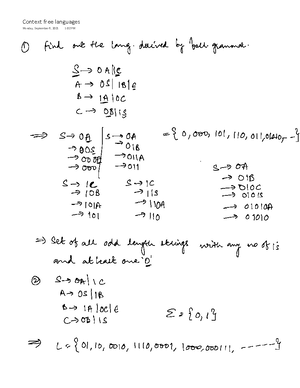 Context free languages
① Find out the lang. derived by foll. grammar.
S → 0A|1C
A → 0S|1B|ε
B → 1A|0C
C → 0B|1S
⇒ S → 0A S → 0A = { 0, 000, 101, 110, 011, 01010, --}
→ 00S → 01B
→ 000A → 011A
→ 000 → 011
S → 0A
→ 01B
→ 010C
→ 0101S
→ 01010A
→ 01010
S → 1C S → 1C
→ 10B → 11S
→ 101A → 110A
→ 101 → 110
⇒ Set of all odd length strings with any no of 1s
and at least one '0'
② S → 0A|1C
A → 0S|1B
B → 1A|0C|ε
C → 0B|1S
Σ = {0,1}
⇒ L = {01, 10, 0010, 1110, 0001, 1000, 000111, ------}